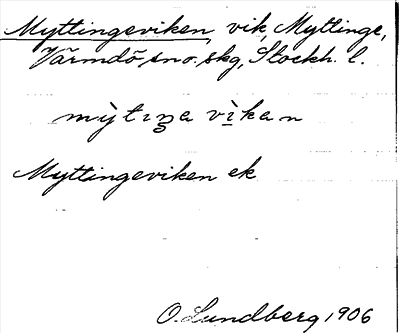 Myttingeviken, vik, Myttinge,
Värmdö sn o. skg, Stockh. l.
mỳtıŋa vìkan
Myttingeviken ek
O. Lundberg 1906